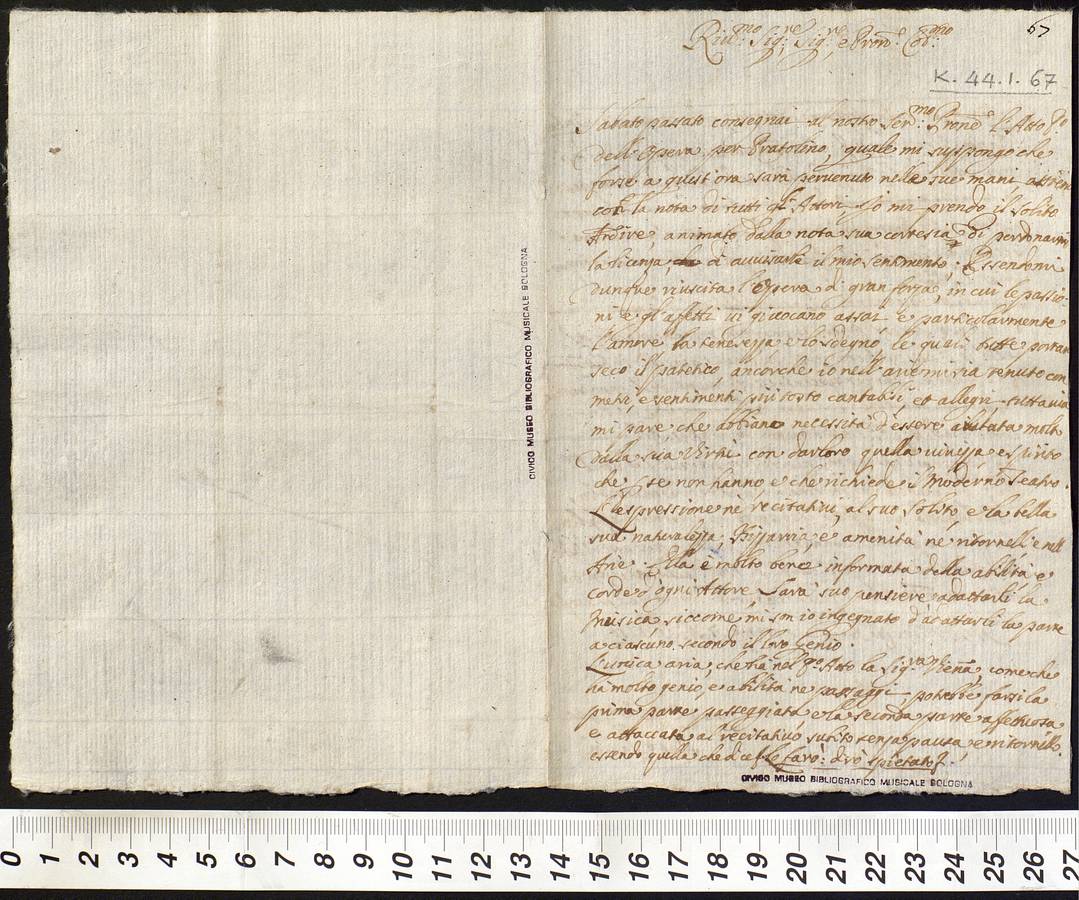 67
Riv.mo Sig.re, Sig.re e Pron.e
K. 44.1.67
Sabato passato consegnai al nostro Ser.mo Prone l'Atto P.o
dell'Opera per Pratolino, quale mi suppongo che
forse a quest'ora sarà pervenuto nelle sue mani,
con la nota di tutti gl'Attori. Io mi prendo il solito
Ardire, animato dalla nota sua cortesia di perdonarmi
la licenza, di avvisarle il mio sentimento. Essendomi
dunque riuscita l'Opera di gran forza, in cui le passio-
ni e gl'affetti vi giuocano assai e particolarmente
l'amore la tenerezza e lo sdegno, le quali tutte portan
seco il patetico, ancorche io nell'arie mi sia tenuto con
metri, e sentimenti più tosto cantabili, et allegri, tuttavia
mi pare che abbiano necessità d'essere aiutata molto
dalla sua Virtù con dar loro quella vivezza e spirito
che per se non hanno e che richiede il Moderno Teatro.
L'espressione ne' recitativi, al suo solito, e la bella
sua naturalezza, Bizzarria, e amenità ne' ritornelli e nell
Arie. Ella è molto bene informata della abilità e
corde d'ogni Attore. Sarà suo pensiere adattarli la
Musica, siccome mi son io ingegnato d'adattarli la parte
a ciascuno secondo il loro Genio.
L'unica aria, che ha nel P.o Atto la Sig.ra, come che
ha molto genio, e abilità ne' passaggi potrebbe farsi la
prima parte passeggiata e la seconda parte affettuosa
e attaccata al recitativo subito senza pausa e ritornello.
essendo quella che dice Le farò: dirò spietato?
CIVICO MUSEO BIBLIOGRAFICO MUSICALE BOLOGNA
CIVICO MUSEO BIBLIOGRAFICO MUSICALE BOLOGNA
0 1 2 3 4 5 6 7 8 9 10 11 12 13 14 15 16 17 18 19 20 21 22 23 24 25 26 27